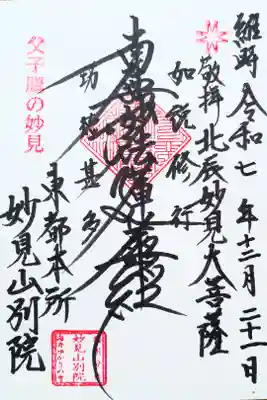 維時 令和七年十二月二十一日
敬拝 北辰妙見大菩薩
如説修行
南無妙法蓮華経
功徳甚多
父子鷹の妙見
東都本所
妙見山別院
妙見山別院